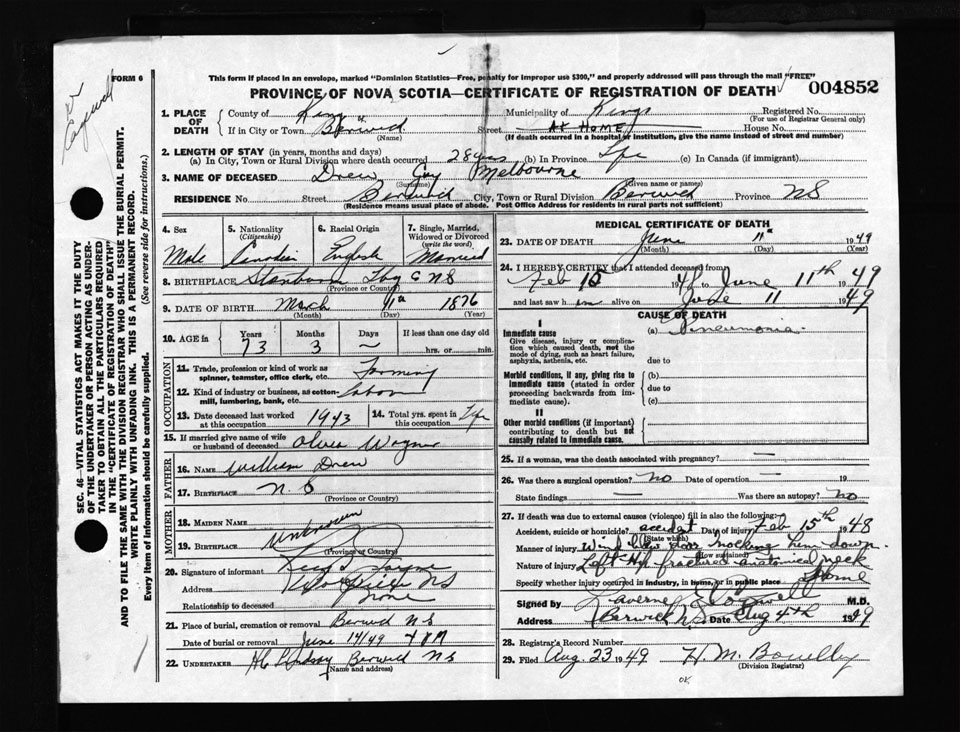 FORM 6
This form if placed in an envelope, marked "Dominion Statistics—Free, penalty for improper use $300," and properly addressed will pass through the mail "FREE"
PROVINCE OF NOVA SCOTIA—CERTIFICATE OF REGISTRATION OF DEATH
004852
1. PLACE OF DEATH
County of Kings
Municipality of Kings
Registered No.
(For use of Registrar General only)
If in City or Town Berwick
(Name)
Street At Home House No.
(If death occurred in a hospital or institution, give the name instead of street and number)
2. LENGTH OF STAY (in years, months and days)
(a) In City, Town or Rural Division where death occurred 28 years (b) In Province Life (c) In Canada (if immigrant)
3. NAME OF DECEASED Drew Guy Melbourne
(Surname) (Given name or names)
RESIDENCE No. Street Berwick City, Town or Rural Division Berwick Province NS
(Residence means usual place of abode. Post Office Address for residents in rural parts not sufficient)
4. Sex
Male
5. Nationality
(Citizenship)
Canadian
6. Racial Origin
English
7. Single, Married, Widowed or Divorced
(write the word)
Married
8. BIRTHPLACE NS
(Province or Country)
9. DATE OF BIRTH March 11th 1876
(Month) (Day) (Year)
10. AGE in
Years Months Days If less than one day old
73 3 ~ hrs. or min.
OCCUPATION
11. Trade, profession or kind of work as spinner, teamster, office clerk, etc. Farming
12. Kind of industry or business, as cotten-mill, lumbering, bank, etc. labour
13. Date deceased last worked at this occupation 1943
14. Total yrs. spent in this occupation Life
15. If married give name of wife or husband of deceased Wagner
FATHER
16. NAME William Drew
17. BIRTHPLACE N.S
(Province or Country)
MOTHER
18. MAIDEN NAME
Unknown
19. BIRTHPLACE
(Province or Country)
20. Signature of informant
Address NS
Relationship to deceased None
21. Place of burial, cremation or removal Berwick NS
Date of burial or removal June 14/49
22. UNDERTAKER Lindsay Berwick NS
(Name and address)
MEDICAL CERTIFICATE OF DEATH
23. DATE OF DEATH June 11th 1949
(Month) (Day) (Year)
24. I HEREBY CERTIFY that I attended deceased from
Feb 194 to June 11th 1949
and last saw him alive on June 11 1949
CAUSE OF DEATH
I
Immediate cause
Give disease, injury or complication which caused death, not the mode of dying, such as heart failure, asphyxia, asthenia, etc.
(a) Pneumonia
due to
Morbid conditions, if any, giving rise to immediate cause (stated in order proceeding backwards from immediate cause).
(b)
due to
(c)
II
Other morbid conditions (if important) contributing to death but not causally related to immediate cause.
25. If a woman, was the death associated with pregnancy? —
26. Was there a surgical operation? No Date of operation — 19
State findings — Was there an autopsy? No
27. If death was due to external causes (violence) fill in also the following:
Accident, suicide or homicide? accident Date of injury Feb 15th 1948
(State which)
Manner of injury Wind blew door knocking him down.
(How sustained)
Nature of injury Left Hip fractured anatomical neck
Specify whether injury occurred in industry, in home, or in public place Home
Signed by Laverne Cogswell M.D.
Address Berwick N.S. Date Aug 4th 1949
28. Registrar's Record Number
29. Filed Aug. 23 1949 H. M.
(Division Registrar)
OK
SEC. 46—VITAL STATISTICS ACT MAKES IT THE DUTY
OF THE UNDERTAKER OR PERSON ACTING AS UNDER-
TAKER TO OBTAIN ALL THE PARTICULARS REQUIRED
IN THE "CERTIFICATE OF REGISTRATION OF DEATH"
AND TO FILE THE SAME WITH THE DIVISION REGISTRAR WHO SHALL ISSUE THE BURIAL PERMIT.
WRITE PLAINLY WITH UNFADING INK. THIS IS A PERMANENT RECORD.
Every item of information should be carefully supplied. (See reverse side for instructions.)
Dr Cogswell